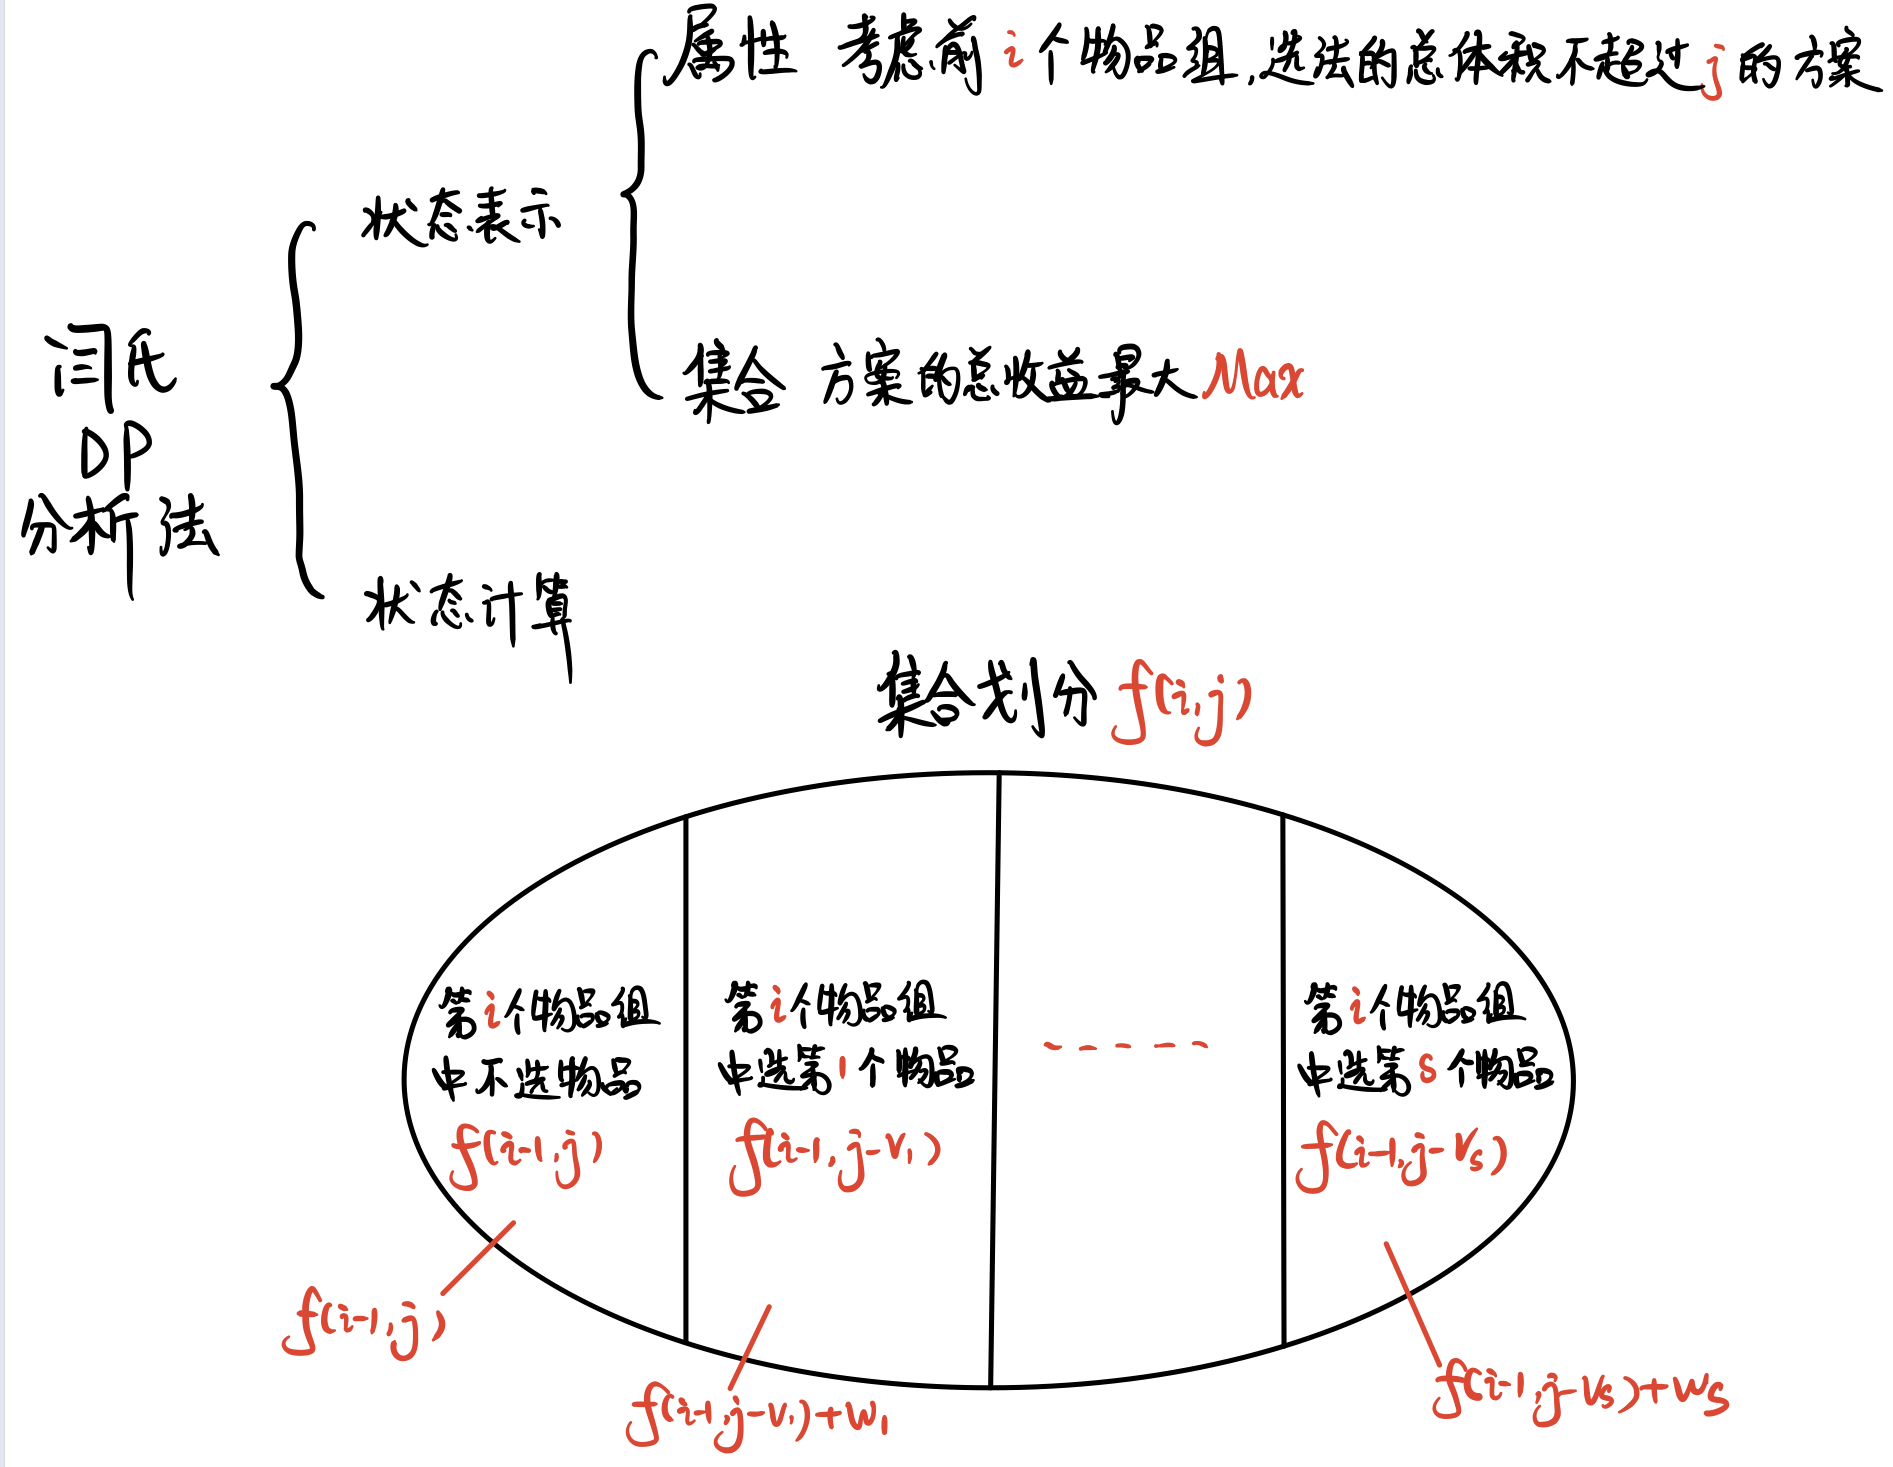 闫氏
DP
分析法
状态表示
属性 考虑前i个物品组,选法的总体积不超过j的方案
集合 方案的总收益最大Max
状态计算
集合划分 f(i,j)
第i个物品组
中不选物品
f(i-1,j)
第i个物品组
中选第1个物品
f(i-1,j-v₁)
-----
第i个物品组
中选第s个物品
f(i-1,j-vₛ)
f(i-1,j)
f(i-1,j-v₁)+w₁
f(i-1,j-vₛ)+wₛ